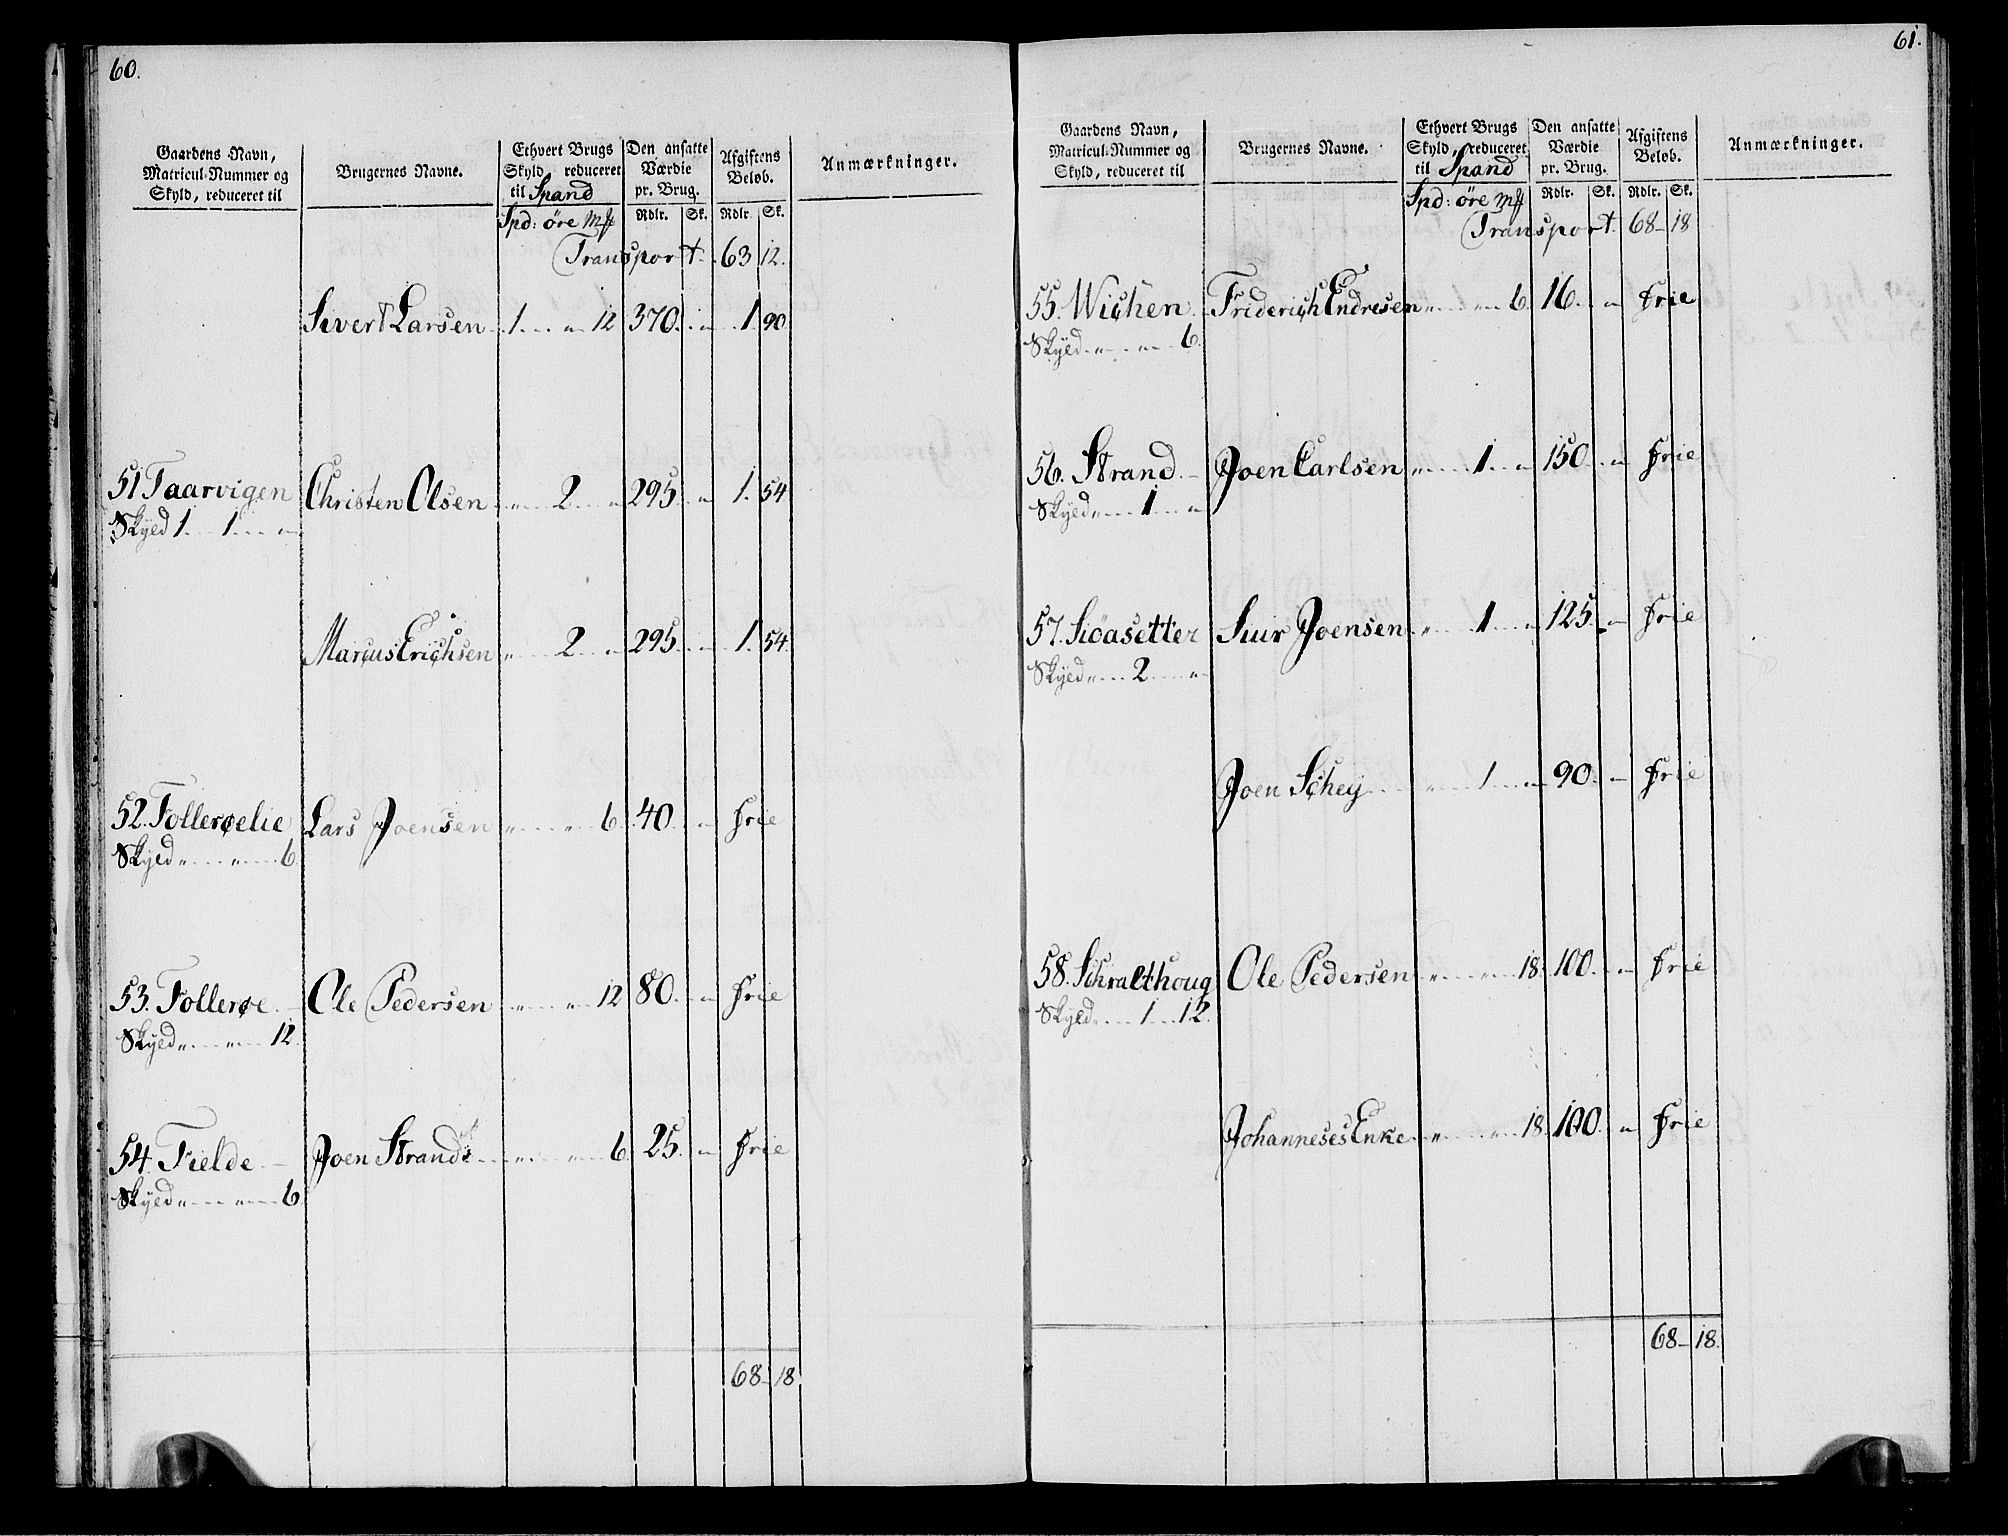 60.
Gaardens Navn, Matricul-Nummer og Skyld, reduceret til | Brugernes Navne. | Ethvert Brugs Skyld, reduceret til Spand | Den ansatte Værdie pr. Brug. | Afgiftens Beløb. | Anmærkninger.
Spd: öre | Rdlr. | Sk. | Rdlr. | Sk.
Transport. 63 12.
Sivert Larsen 1 .. " 12 370. " 1. 90
51 Taarvigen Christen Olsen " 2 " 295. " 1. 54
Skyld 1 .. 1 .. "
Marcus Erichsen " 2 " 295. " 1. 54.
52. Follerøelie Lars Joensen " " 6 40. " frie
Skyld " " 6
53. Follerøe Ole Pedersen " " 12 80. " frie
Skyld " " 12.
54. Fielde Joen Strand " " 6. 25. " frie
Skyld " " 6.
68 18
61.
Gaardens Navn, Matricul-Nummer og Skyld, reduceret til | Brugernes Navne. | Ethvert Brugs Skyld, reduceret til Spand | Den ansatte Værdie pr. Brug. | Afgiftens Beløb. | Anmærkninger.
Spd: öre | Rdlr. | Sk. | Rdlr. | Sk.
Transport. 68 18
55. Wichen Friderich Endresen " " 6. 16. " frie
Skyld " " 6.
56. Strand Joen Carlsen " 1 " 150. " frie
Skyld " 1 "
57. Siöasetter Siur Joensen " 1 " 125. " frie
Skyld " 2 "
Joen Schey " 1 " 90. " frie
58. Schralthoug Ole Pedersen " " 18. 100. " frie
Skyld " 1 12.
Johanneses Enke " " 18. 100. " frie
68 18.